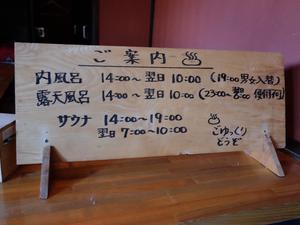 ご案内 ♨
内風呂 14:00～翌日 10:00 (19:00男女入替)
露天風呂 14:00～翌日 10:00 (23:00～
サウナ 14:00～19:00
翌日 7:00～10:00
♨
ごゆっくり
どうぞ